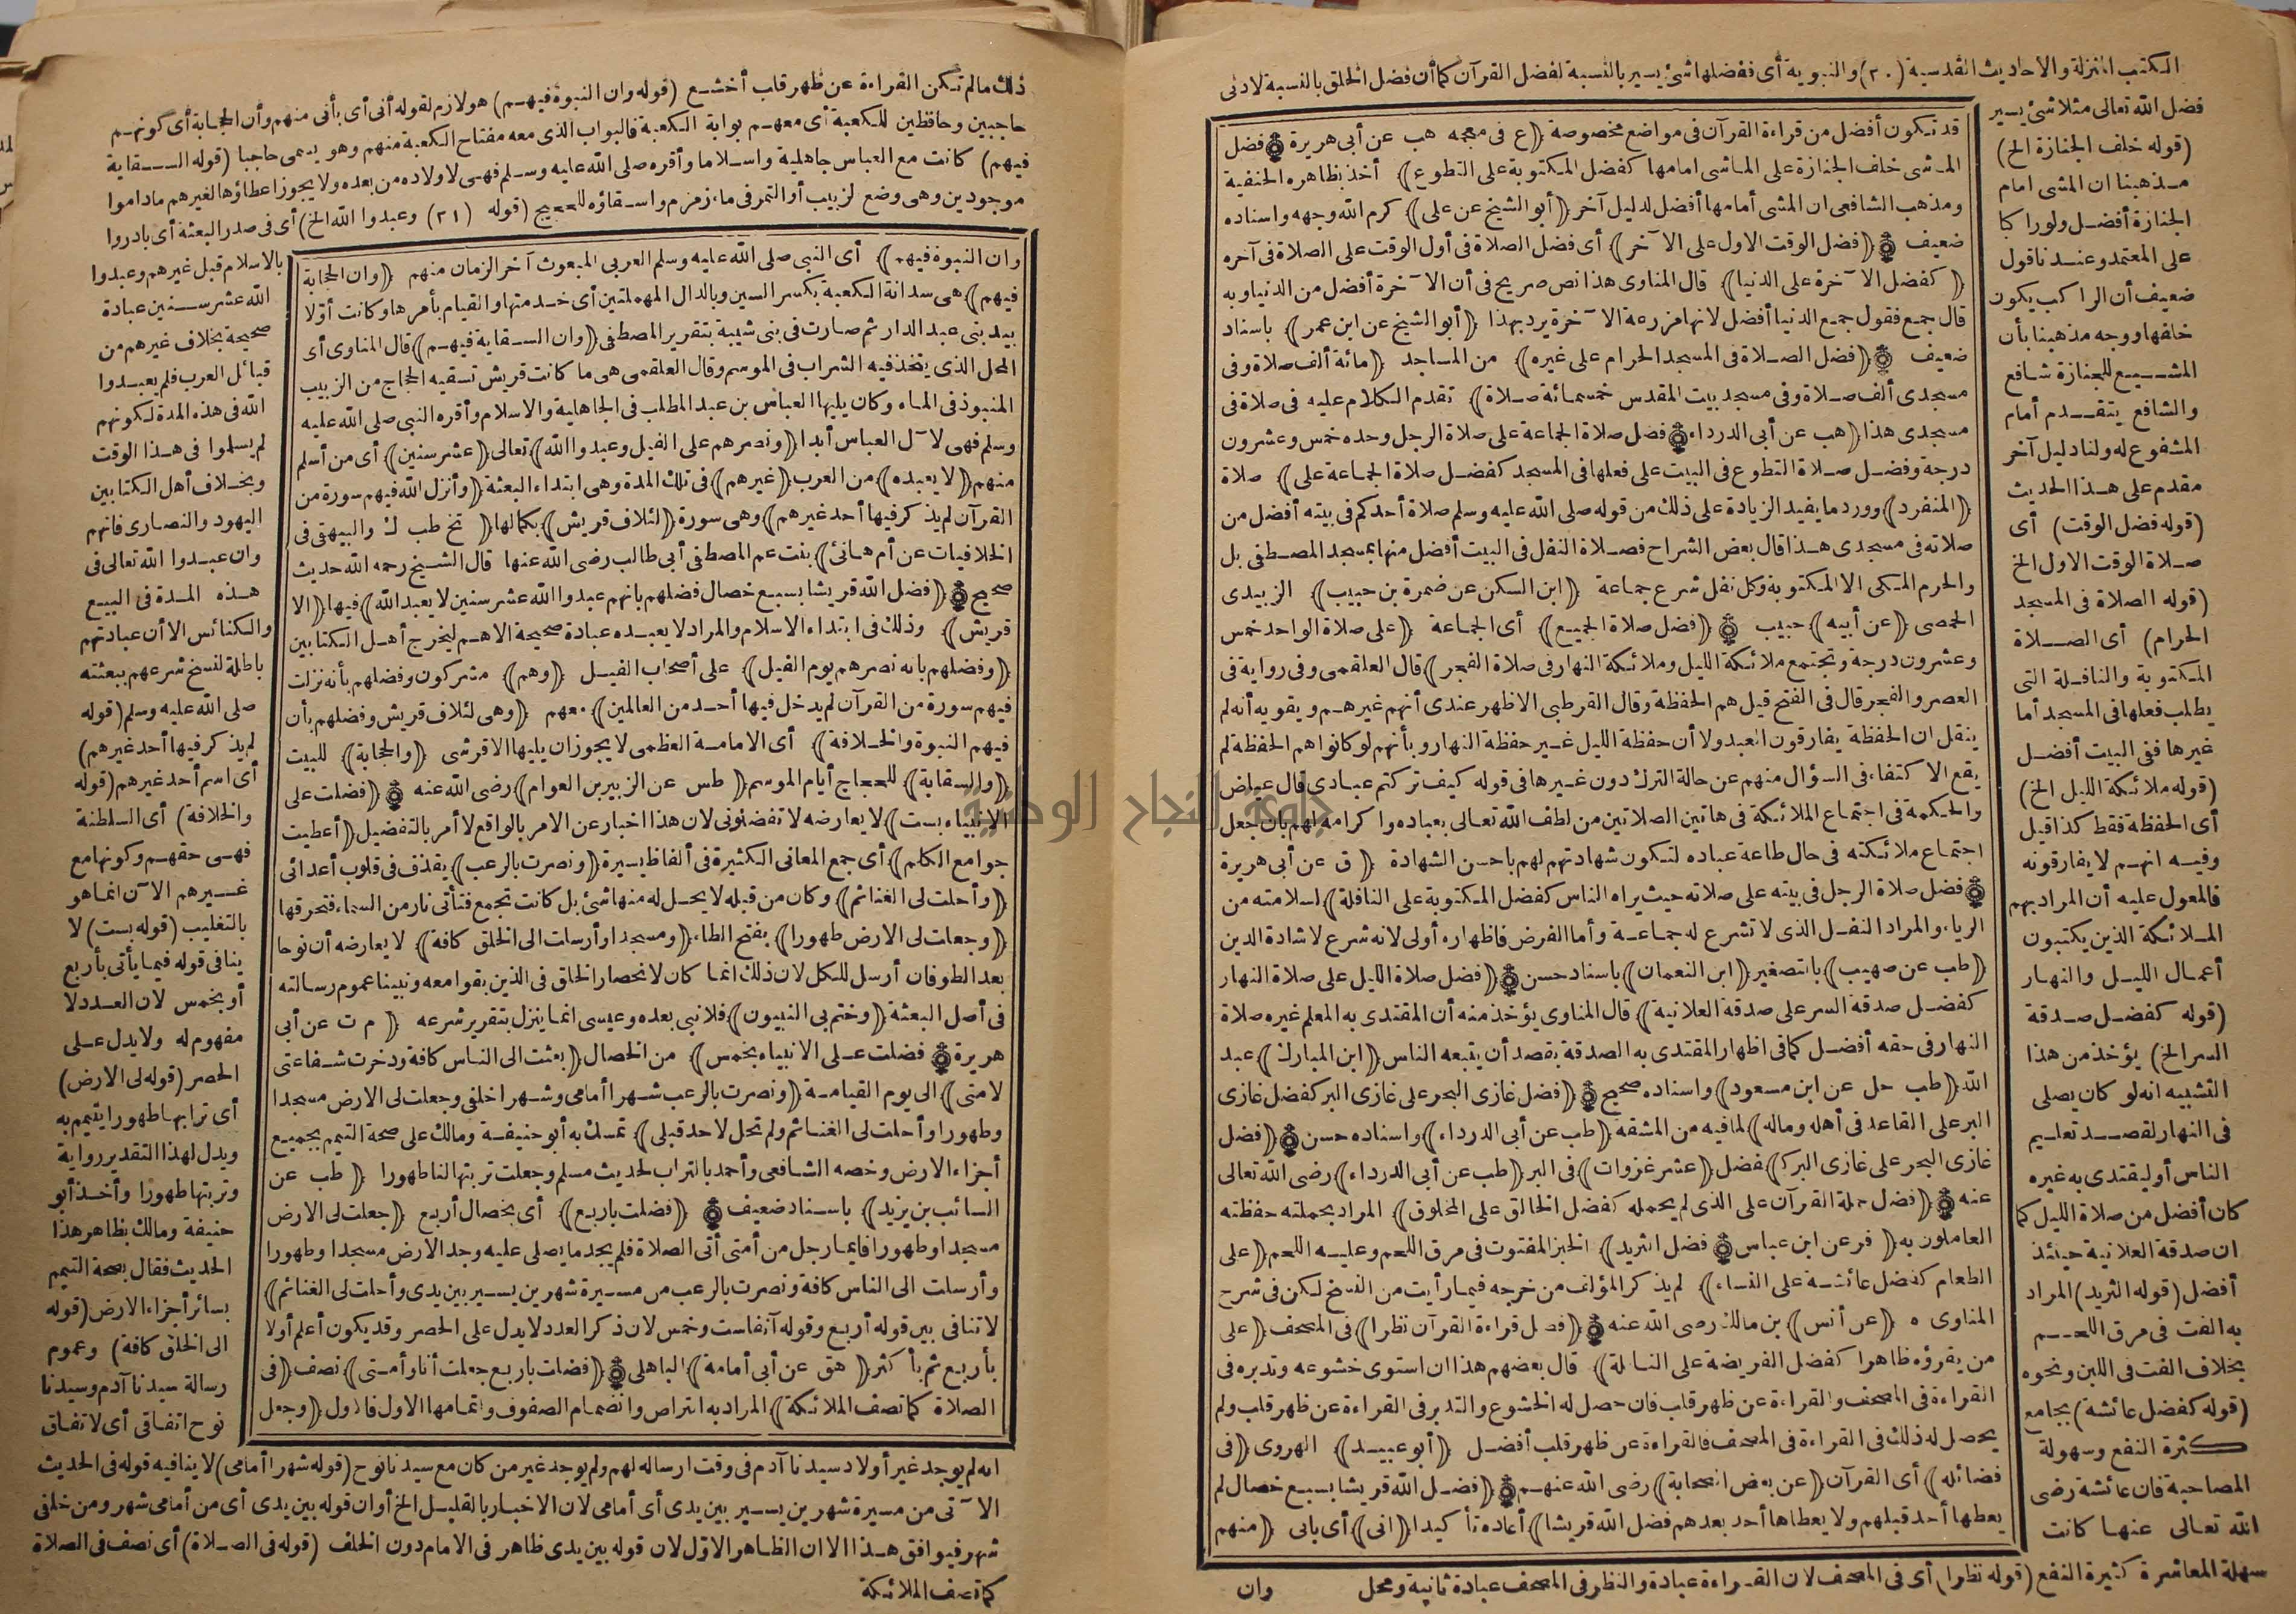 الكتب المنزلة والاحاديث القدسية (٢٠) والنبوية أى ففضلها شئ يسير بالنسبة لفضل القرآن كما أن فضل الخلق بالنسبة لادنى
فضل الله تعالى مثلا شئ يسير
(قوله خلف الجنازة الخ)
مذهبنا ان المشى امام
الجنازة أفضل ولو راكبا
على المعتمد وعندنا قول
ضعيف أن الراكب يكون
خلفها ووجه مذهبنا بأن
المشيع للجنازة شافع
والشافع يتقدم أمام
المشفوع له ولنا دليل آخر
مقدم على هذا الحديث
(قوله فضل الوقت) أى
صلاة الوقت الاول الخ
(قوله الصلاة فى المسجد
الحرام) أى الصلاة
المكتوبة والنافلة التى
يطلب فعلها فى المسجد أما
غيرها ففى البيت أفضل
(قوله ملائكة الليل الخ)
أى الحفظة فقط كذا قيل
وفيه انهم لا يفارقونه
فالمعول عليه أن المراد بهم
الملائكة الذين يكتبون
أعمال الليل والنهار
(قوله كفضل صدقة
السر الخ) يؤخذ من هذا
التشبيه انه لو كان يصلى
فى النهار لقصد تعليم
الناس أو ليقتدى به غيره
كان أفضل من صلاة الليل كما
ان صدقة العلانية حينئذ
أفضل (قوله الثريد) المراد
به الفت فى مرق اللحم
بخلاف الفت فى اللبن ونحوه
(قوله كفضل عائشة) بجامع
كثرة النفع وسهولة
المصاحبة فان عائشة رضى
الله تعالى عنها كانت
قد تكون أفضل من قراءة القرآن فى مواضع مخصوصة (ع فى معجمه هب عن أبى هريرة فضل
الماشى خلف الجنازة على الماشى امامها كفضل المكتوبة على التطوع) أخذ بظاهره الحنفية
ومذهب الشافعى ان المشى أمامها أفضل لدليل آخر (أبو الشيخ عن على) كرم الله وجهه واسناده
ضعيف (فضل الوقت الاول على الآخر) أى فضل الصلاة فى أول الوقت على الصلاة فى آخره
(كفضل الآخرة على الدنيا) قال المناوى هذا نص صريح فى أن الآخرة أفضل من الدنيا وبه
قال جمع فقول جمع الدنيا أفضل لانها مزرعة الآخرة يرد بهذا (أبو الشيخ عن ابن عمر) باسناد
ضعيف (فضل الصلاة فى المسجد الحرام على غيره) من المساجد (مائة ألف صلاة وفى
مسجدى ألف صلاة وفى مسجد بيت المقدس خمسمائة صلاة) تقدم الكلام عليه فى صلاة فى
مسجدى هذا (هب عن أبى الدرداء فضل صلاة الجماعة على صلاة الرجل وحده خمس وعشرون
درجة وفضل صلاة التطوع فى البيت على فعلها فى المسجد كفضل صلاة الجماعة على) صلاة
(المنفرد) وورد ما يفيد الزيادة على ذلك من قوله صلى الله عليه وسلم صلاة أحدكم فى بيته أفضل من
صلاته فى مسجدى هذا قال بعض الشراح فصلاة النفل فى البيت أفضل منها بمسجد المصطفى بل
والحرم المكى الا المكتوبة وكل نفل شرع جماعة (ابن السكن عن ضمرة بن حبيب) الزبيدى
الحمصى (عن أبيه) حبيب (فضل صلاة الجميع) أى الجماعة (على صلاة الواحد خمس
وعشرون درجة وتجتمع ملائكة الليل وملائكة النهار فى صلاة الفجر) قال العلقمى وفى رواية فى
العصر والفجر قال فى الفتح قيل هم الحفظة وقال القرطبى الاظهر عندى أنهم غيرهم ويقويه أنه لم
ينقل ان الحفظة يفارقون العبد ولا أن حفظة الليل غير حفظة النهار وبأنهم لو كانوا هم الحفظة لم
يقع الاكتفاء فى السؤال منهم عن حالة الترك دون غيرها فى قوله كيف تركتم عبادى قال عياض
والحكمة فى اجتماع الملائكة فى هاتين الصلاتين من لطف الله تعالى بعباده واكرامه لهم بأن جعل
اجتماع ملائكته فى حال طاعة عباده لتكون شهادتهم لهم باحسن الشهادة (ق عن أبى هريرة
فضل صلاة الرجل فى بيته على صلاته حيث يراه الناس كفضل المكتوبة على النافلة) لسلامته من
الرياء والمراد النفل الذى لا تشرع له جماعة وأما الفرض فاظهاره أولى لانه شرع لاشادة الدين
(طب عن صهيب) بالتصغير (ابن النعمان) باسناد حسن (فضل صلاة الليل على صلاة النهار
كفضل صدقة السر على صدقة العلانية) قال المناوى يؤخذ منه أن المقتدى به المعلم غيره صلاة
النهار فى حقه أفضل كما فى اظهار المقتدى به الصدقة بقصد أن يتبعه الناس (ابن المبارك) عبد
الله (طب حل عن ابن مسعود) واسناده صحيح (فضل غازى البحر على غازى البر كفضل غازى
البر على القاعد فى أهله وماله) لما فيه من المشقة (طب عن أبى الدرداء) واسناده حسن (فضل
غازى البحر على غازى البر ك) فضل (عشر غزوات) فى البر (طب عن أبى الدرداء) رضى الله تعالى
عنه (فضل حملة القرآن على الذى لم يحمله كفضل الخالق على المخلوق) المراد بحملته حفظته
العاملون به (فر عن ابن عباس فضل الثريد) الخبز المفتوت فى مرق اللحم وعليه اللحم (على
الطعام كفضل عائشة على النساء) لم يذكر المؤلف من خرجه فيما رأيت من النسخ لكن فى شرح
المناوى ه (عن أنس) بن مالك رضى الله عنه (فضل قراءة القرآن نظرا) فى المصحف (على
من يقرؤه ظاهرا كفضل الفريضة على النافلة) قال بعضهم هذا ان استوى خشوعه وتدبره فى
القراءة فى المصحف والقراءة عن ظهر قلب فان حصل له الخشوع والتدبر فى القراءة عن ظهر قلب ولم
يحصل له ذلك فى القراءة فى المصحف فالقراءة عن ظهر قلب أفضل (أبو عبيد) الهروى (فى
فضائله) أى القرآن (عن بعض الصحابة) رضى الله عنهم (فضل الله قريشا بسبع خصال لم
يعطها أحد قبلهم ولا يعطاها أحد بعدهم فضل الله قريشا) أعاده تأكيدا (انى) أى بانى (منهم
سهلة المعاشرة كثيرة النفع (قوله نظرا) أى فى المصحف لان القراءة عبادة والنظر فى المصحف عبادة ثانية ومحل
وان
ذلك ما لم تكن القراءة عن ظهر قلب أخشع (قوله وان النبوة فيهم) هو لازم لقوله أنى أى بأنى منهم وأن الحجابة أى كونهم
حاجبين وحافظين للكعبة أى معهم بوابة الكعبة فالبواب الذى معه مفتاح الكعبة منهم وهو يسمى حاجبا (قوله السقاية
فيهم) كانت مع العباس جاهلية واسلاما وأقره صلى الله عليه وسلم فهى لاولاده من بعده ولا يجوز اعطاؤها لغيرهم ما داموا
موجودين وهى وضع لزبيب أو التمر فى ماء زمزم واسقاؤه للحجيج (قوله (٢١) وعبدوا الله الخ) أى فى صدر البعثة أى بادروا
بالاسلام قبل غيرهم وعبدوا
الله عشر سنين عبادة
صحيحة بخلاف غيرهم من
قبائل العرب فلم يعبدوا
الله فى هذه المدة لكونهم
لم يسلموا فى هذا الوقت
وبخلاف أهل الكتابين
اليهود والنصارى فانهم
وان عبدوا الله تعالى فى
هذه المدة فى البيع
والكنائس الا أن عبادتهم
باطلة لنسخ شرعهم ببعثته
صلى الله عليه وسلم (قوله
لم يذكر فيها أحد غيرهم)
أى اسم أحد غيرهم (قوله
والخلافة) أى السلطنة
فهى حقهم وكونها مع
غيرهم الآن انما هو
بالتغليب (قوله بست) لا
ينافى قوله فيما يأتى بأربع
أو بخمس لان العدد لا
مفهوم له ولا يدل على
الحصر (قوله لى الارض)
أى ترابها طهورا يتيمم به
ويدل لهذا التقدير رواية
وتربتها طهورا وأخذ أبو
حنيفة ومالك بظاهر هذا
الحديث فقال بصحة التيمم
بسائر أجزاء الارض (قوله
الى الخلق كافة) وعموم
رسالة سيدنا آدم وسيدنا
نوح اتفاقى أى لاتفاق
وان النبوة فيهم) أى النبى صلى الله عليه وسلم العربى المبعوث آخر الزمان منهم (وان الحجابة
فيهم) هى سدانة الكعبة بكسر السين وبالدال المهملتين أى خدمتها والقيام بأمرها وكانت أولا
بيد بنى عبد الدار ثم صارت فى بنى شيبة بتقرير المصطفى (وان السقاية فيهم) قال المناوى أى
المحل الذى يتخذ فيه الشراب فى الموسم وقال العلقمى هى ما كانت قريش تسقيه الحجاج من الزبيب
المنبوذ فى الماء وكان يليها العباس بن عبد المطلب فى الجاهلية والاسلام وأقره النبى صلى الله عليه
وسلم فهى لآل العباس أبدا (ونصرهم على الفيل وعبدوا الله) تعالى (عشر سنين) أى من أسلم
منهم (لا يعبده) من العرب (غيرهم) فى تلك المدة وهى ابتداء البعثة (وأنزل الله فيهم سورة من
القرآن لم يذكر فيها أحد غيرهم) وهى سورة (لئلاف قريش) بكمالها (تخ طب ك والبيهقى فى
الخلافيات عن أم هانئ) بنت عم المصطفى أبى طالب رضى الله عنها قال الشيخ رحمه الله حديث
صحيح (فضل الله قريشا بسبع خصال فضلهم بانهم عبدوا الله عشر سنين لا يعبد الله) فيها (الا
قريش) وذلك فى ابتداء الاسلام والمراد لا يعبده عبادة صحيحة الا هم ليخرج أهل الكتابين
(وفضلهم بانه نصرهم يوم الفيل) على أصحاب الفيل (وهم) مشركون وفضلهم بأنه نزلت
فيهم سورة من القرآن لم يدخل فيها أحد من العالمين) معهم (وهى لئلاف قريش وفضلهم بأن
فيهم النبوة والخلافة) أى الامامة العظمى لا يجوز ان يليها الا قرشى (والحجابة) للبيت
(والسقاية) للحجاج أيام الموسم (طس عن الزبير بن العوام) رضى الله عنه (فضلت على
الانبياء بست) لا يعارضه لا تفضلونى لان هذا اخبار عن الامر بالواقع لا أمر بالتفضيل (أعطيت
جوامع الكلم) أى جمع المعانى الكثيرة فى ألفاظ يسيرة (ونصرت بالرعب) يقذف فى قلوب أعدائى
(وأحلت لى الغنائم) وكان من قبله لا يحل له منها شئ بل كانت تجمع فتأتى نار من السماء فتحرقها
(وجعلت لى الارض طهورا) بفتح الطاء (ومسجدا وأرسلت الى الخلق كافة) لا يعارضه أن نوحا
بعد الطوفان أرسل للكل لان ذلك انما كان لانحصار الخلق فى الذين بقوا معه ونبينا عموم رسالته
فى أصل البعثة (وختم بى النبيون) فلا نبى بعده وعيسى انما ينزل بتقرير شرعه (م ت عن أبى
هريرة فضلت على الانبياء بخمس) من الخصال (بعثت الى الناس كافة ودخرت شفاعتى
لامتى) الى يوم القيامة (ونصرت بالرعب شهرا أمامى وشهرا خلفى وجعلت لى الارض مسجدا
وطهورا وأحلت لى الغنائم ولم تحل لاحد قبلى) تمسك به أبو حنيفة ومالك على صحة التيمم بجميع
أجزاء الارض وخصه الشافعى وأحمد بالتراب لحديث مسلم وجعلت تربتها لنا طهورا (طب عن
السائب بن يزيد) باسناد ضعيف (فضلت باربع) أى بخصال أربع (جعلت لى الارض
مسجدا وطهورا فايما رجل من أمتى أتى الصلاة فلم يجد ما يصلى عليه وجد الارض مسجدا وطهورا
وأرسلت الى الناس كافة ونصرت بالرعب من مسيرة شهرين يسير بين يدى وأحلت لى الغنائم)
لا تنافى بين قوله أربع وقوله آنفا ست وخمس لان ذكر العدد لا يدل على الحصر وقد يكون أعلم أولا
بأربع ثم بأكثر (هق عن أبى أمامة) الباهلى (فضلت باربع جعلت أنا وأمتى) نصف (فى
الصلاة كما تصف الملائكة) المراد به التراص وانضمام الصفوف واتمامها الاول فالاول (وجعل
انه لم يوجد غير أولاد سيدنا آدم فى وقت ارساله لهم ولم يوجد غير من كان مع سيدنا نوح (قوله شهرا أمامى) لا ينافيه قوله فى الحديث
الآتى من مسيرة شهرين يسير بين يدى أى أمامى لان الاخبار بالقليل الخ أو ان قوله بين يدى أى من أمامى شهر ومن خلفى
شهر فيوافق هذا الا ان الظاهر الاول لان قوله بين يدى ظاهر فى الامام دون الخلف (قوله فى الصلاة) أى نصف فى الصلاة
كما تصف الملائكة
جامعة النجاح الوطنية